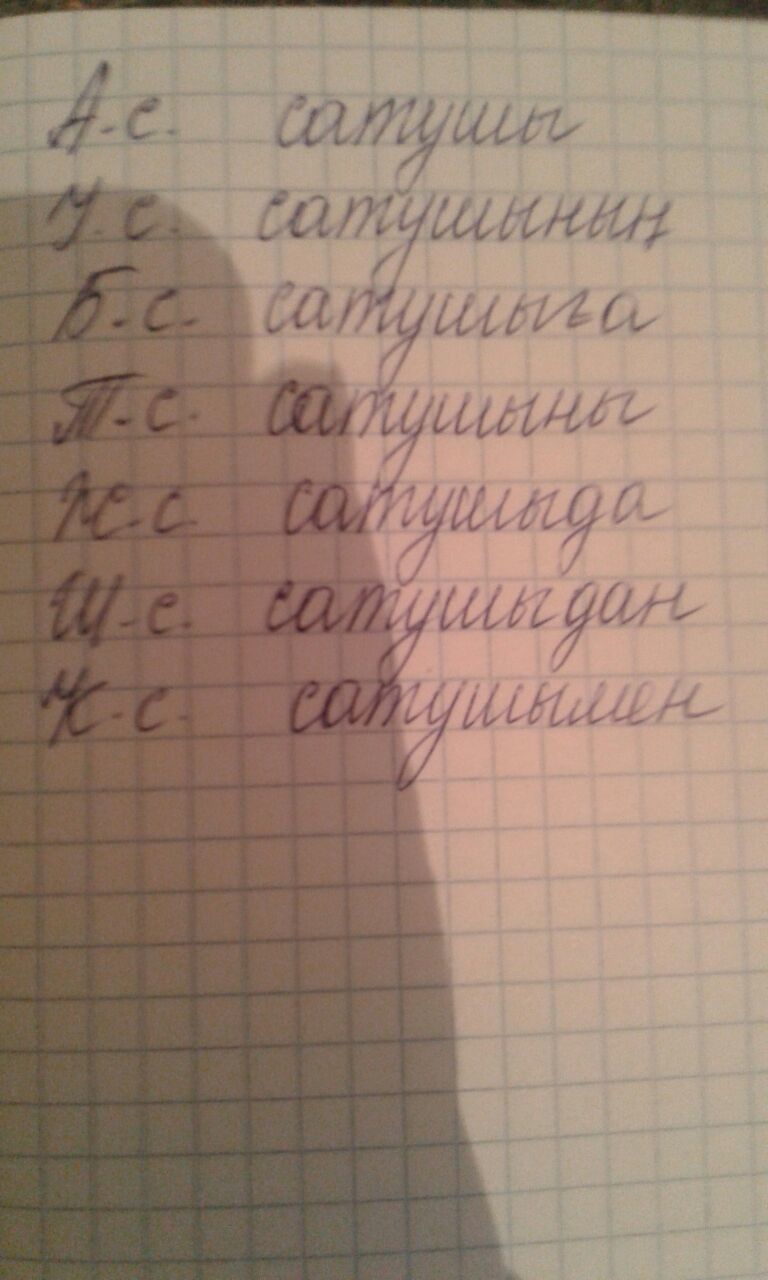 А.с. сатушы
І.с. сатушының
Б.с. сатушыға
Т.с. сатушыны
Ж.с. сатушыда
Ш.с. сатушыдан
К.с. сатушымен